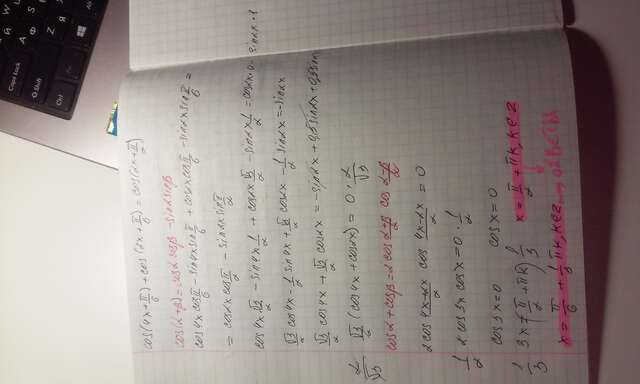 Caps Lock
Shift
Ctrl
Alt
cos(4x+π/6)+cos(2x+π/6)=cos(2x+π/2)
cos(α+β)=cosα cosβ -sinα sinβ
cos4x cosπ/6 - sin4x sinπ/6 + cos2x cosπ/6 - sin2x sinπ/6 =
= cos2x cosπ/2 - sin2x sinπ/2
cos4x·√3/2 - sin4x 1/2 + cos2x √3/2 - sin2x 1/2 = cos2x·0 - sin2x·1
√3/2 cos4x - 1/2 sin4x + √3/2 cos2x - 1/2 sin2x = -sin2x
√3/2 cos4x + √3/2 cos2x = -sin2x + 0,5sin2x +
2/√3 √3/2 (cos4x+cos2x) = 0 · 2/√3
cosα+cosβ=2cos α+β/2 cos α-β/2
2cos 4x+2x/2 cos 4x-2x/2 = 0
1/2 2cos3x cosx=0·1/2
cos3x=0 cosx=0
1/3 3x=(π/2+πk) 1/3 x=π/2+πk,k∈z
x=π/6+1/3πk,k∈z → ОТВЕТЫ